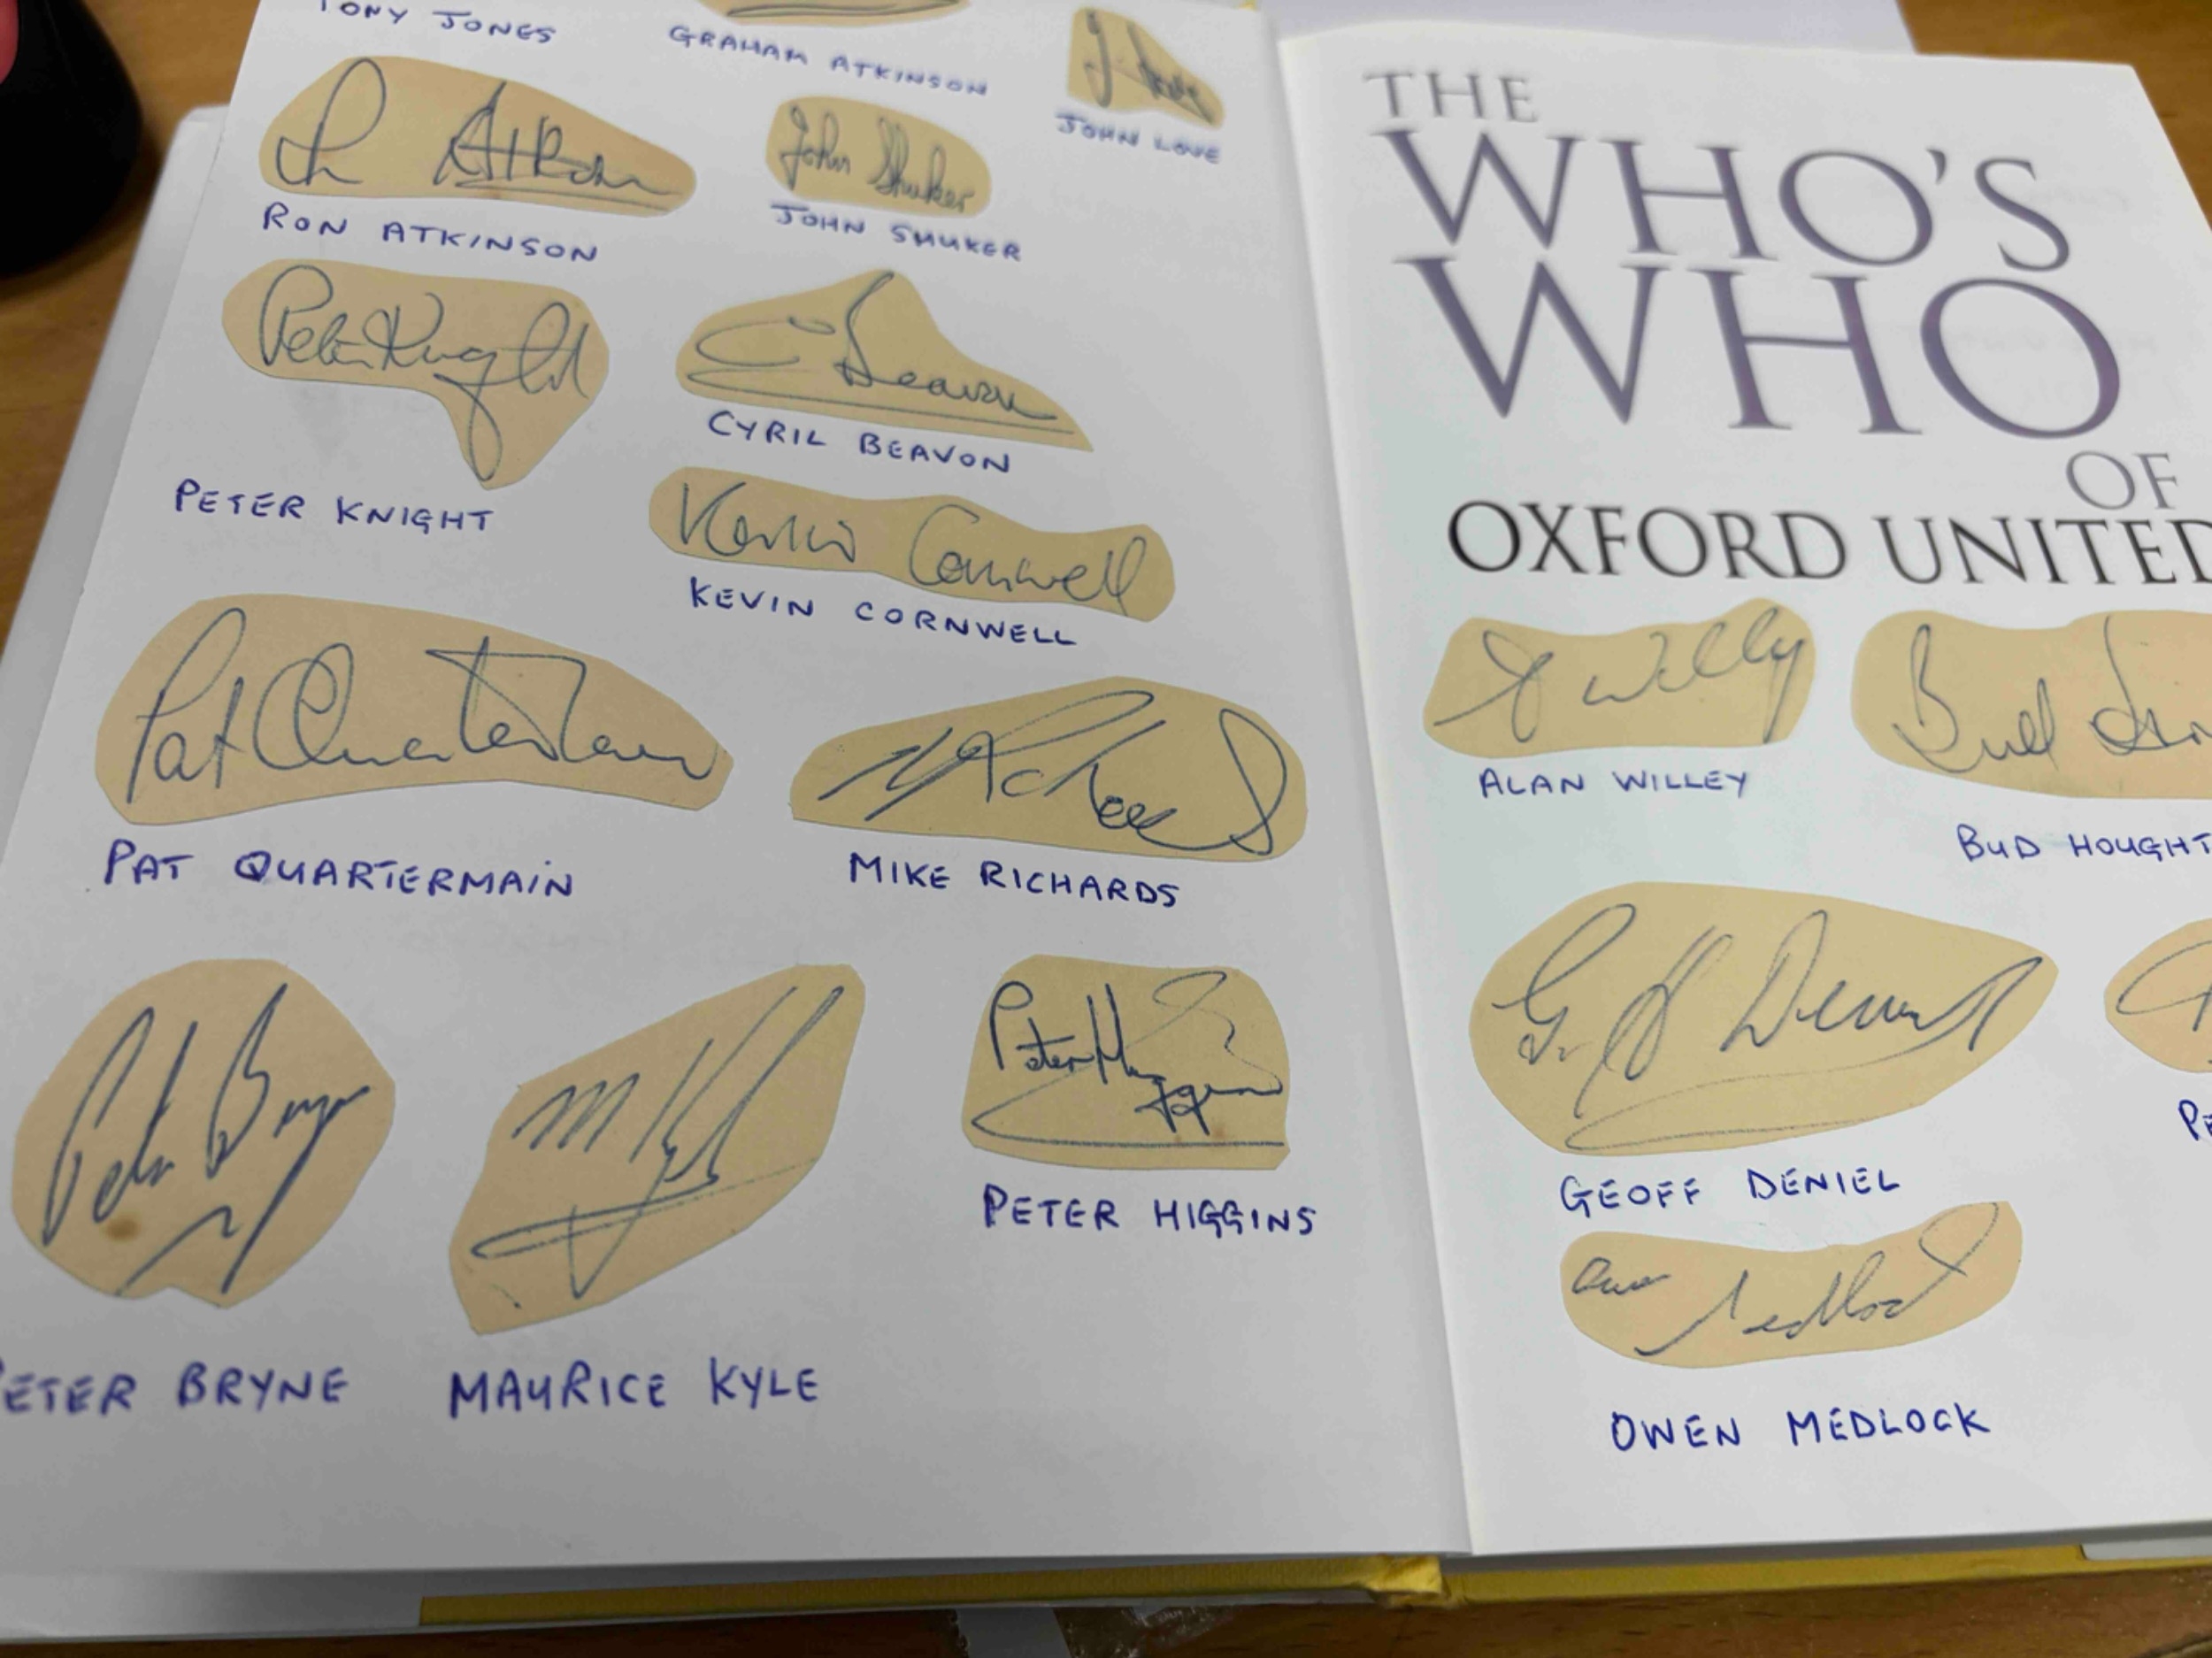 TONY JONES
GRAHAM ATKINSON
J. Love
JOHN LOVE
R Atkinson
RON ATKINSON
John Shuker
JOHN SHUKER
Peter Knight
PETER KNIGHT
C Beavon
CYRIL BEAVON
Kevin Cornwell
KEVIN CORNWELL
Pat Quartermain
PAT QUARTERMAIN
M Richards
MIKE RICHARDS
Peter Bryne
PETER BRYNE
M Kyle
MAURICE KYLE
Peter Higgins
PETER HIGGINS
THE
WHO'S
WHO
OF
OXFORD UNITED
A Willey
ALAN WILLEY
Bud
BUD HOUGHT
Geoff Deniel
GEOFF DENIEL
PE
Owen Medlock
OWEN MEDLOCK